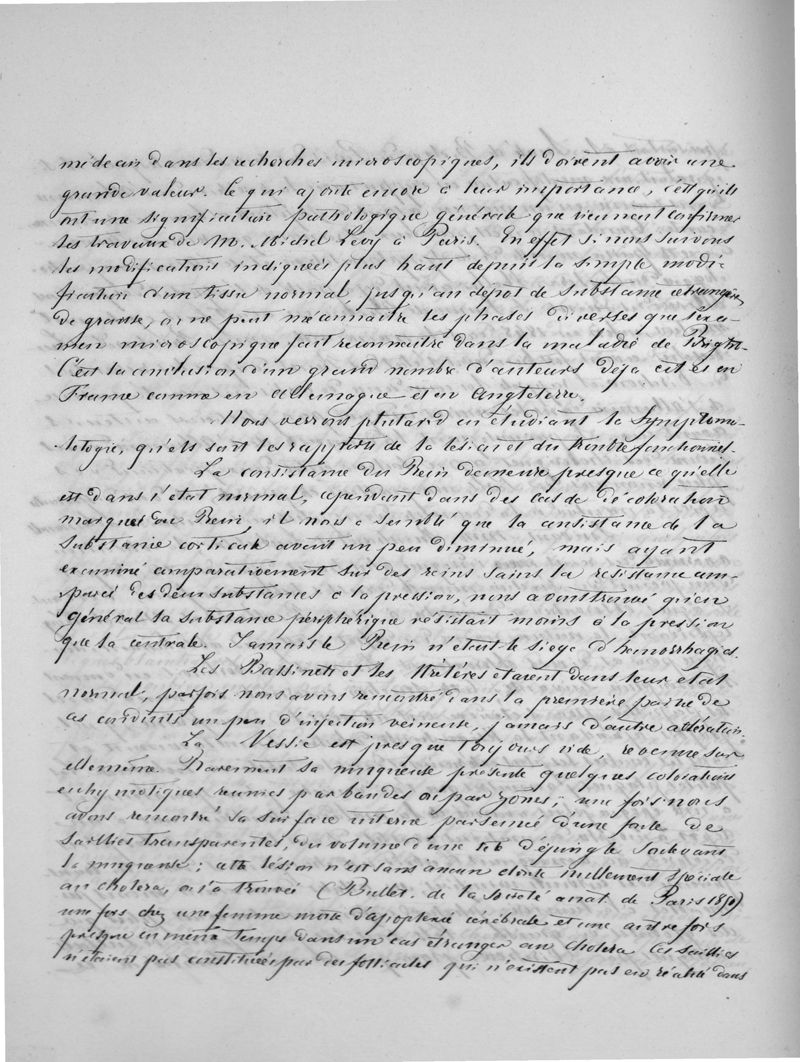 médecin dans les recherches microscopiques, ils doivent avoir une
grande valeur. Ce qui ajoute encore à leur importance, c'est qu'ils
ont une signification pathologique générale que viennent confirmer
les travaux de M. Michel Levy à Paris. En effet si nous suivons
les modifications indiquées plus haut depuis la simple modi-
fication d'un tissu normal, jusqu'au dépot de substance étrangère,
de graisse, on ne peut méconnaitre les phases diverses que l'exa-
men microscopique fait reconnaitre dans la maladie de Bright.
C'est la conclusion d'un grand nombre d'auteurs déja cités en
France comme en Allemagne et en Angleterre.
Nous verrons plutard en étudiant la Symptoma-
tologie, quels sont les rapports de la lésion et du trouble fonctionnel.
La consistance du Rein demeure presque ce qu'elle
est dans l'état normal, cependant dans des cas de décoloration
marquée du Rein, il nous a semblé que la consistance de la
substance corticale avait un peu diminué, mais ayant
examiné comparativement sur des reins sains la resistance com-
parée des deux substances à la pression, nous avons trouvé qu'en
général la substance périphérique résistait moins à la pression
que la centrale. Jamais le Rein n'était le siege d'hémorrhagies.
Les Bassinets et les Urétères etaient dans leur etat
normal, parfois nous avons rencontré dans la premiere partie de
ces conduits un peu d'injection veineuse, jamais d'autre altération.
La Vessie est presque toujours vide, revenue sur
elle même. Rarement sa muqueuse présente quelques colorations
ecchymotiques reunies par bandes ou par zônes; une fois nous
avons rencontré sa surface interne parsemée d'une foule de
saillies transparentes, du volume d'une tête d'épingle soulevant
la muqueuse; cette lésion n'est sans aucun doute nullement spéciale
au choléra, on l'a trouvée (Bullet. de la société anat de Paris
une fois chez une femme morte d'apoplexie cérébrale et une autre fois
presque en même temps dans un cas étranger au choléra Ces saillies
n'étaient pas constituées par des follicules qui n'existent pas en réalité dans